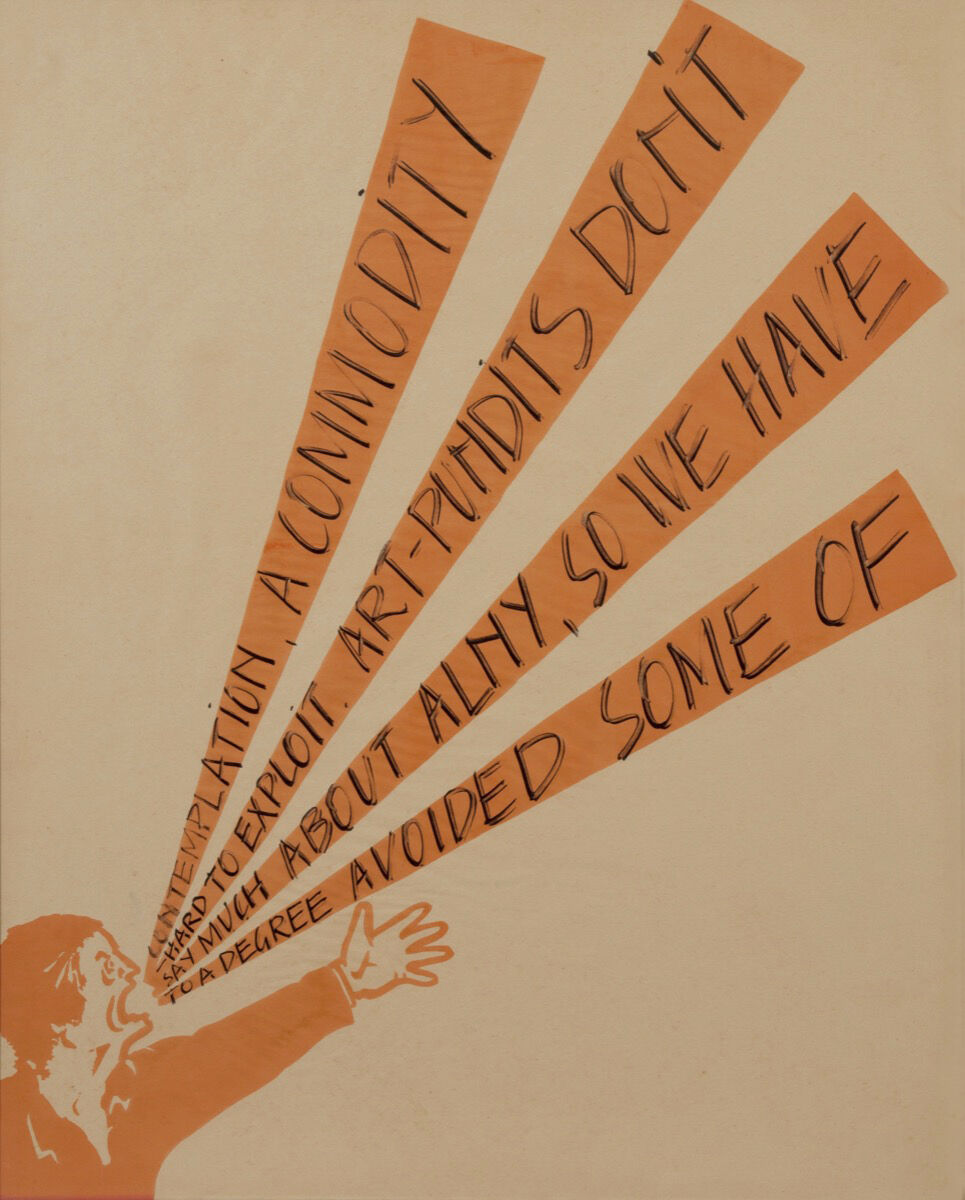 CONTEMPLATION, A COMMODITY
—HARD TO EXPLOIT. ART-PUNDITS DON'T
SAY MUCH ABOUT ALNY, SO WE HAVE
TO A DEGREE AVOIDED SOME OF